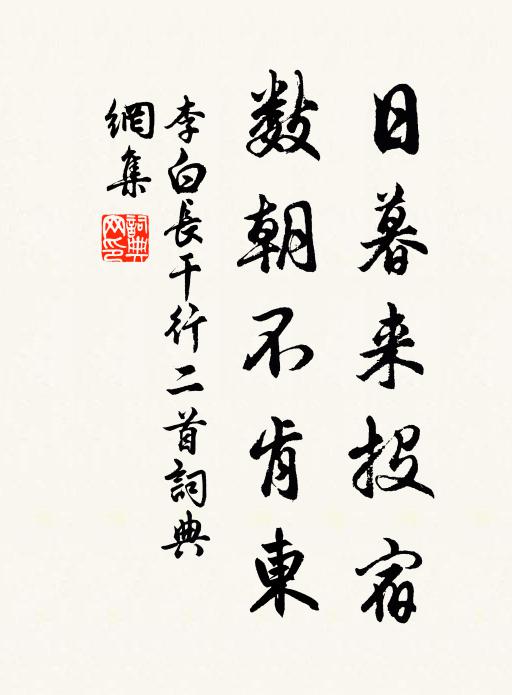 日暮来投宿
數朝不肯東
李白長干行二首詞典
網集
詞典
网印